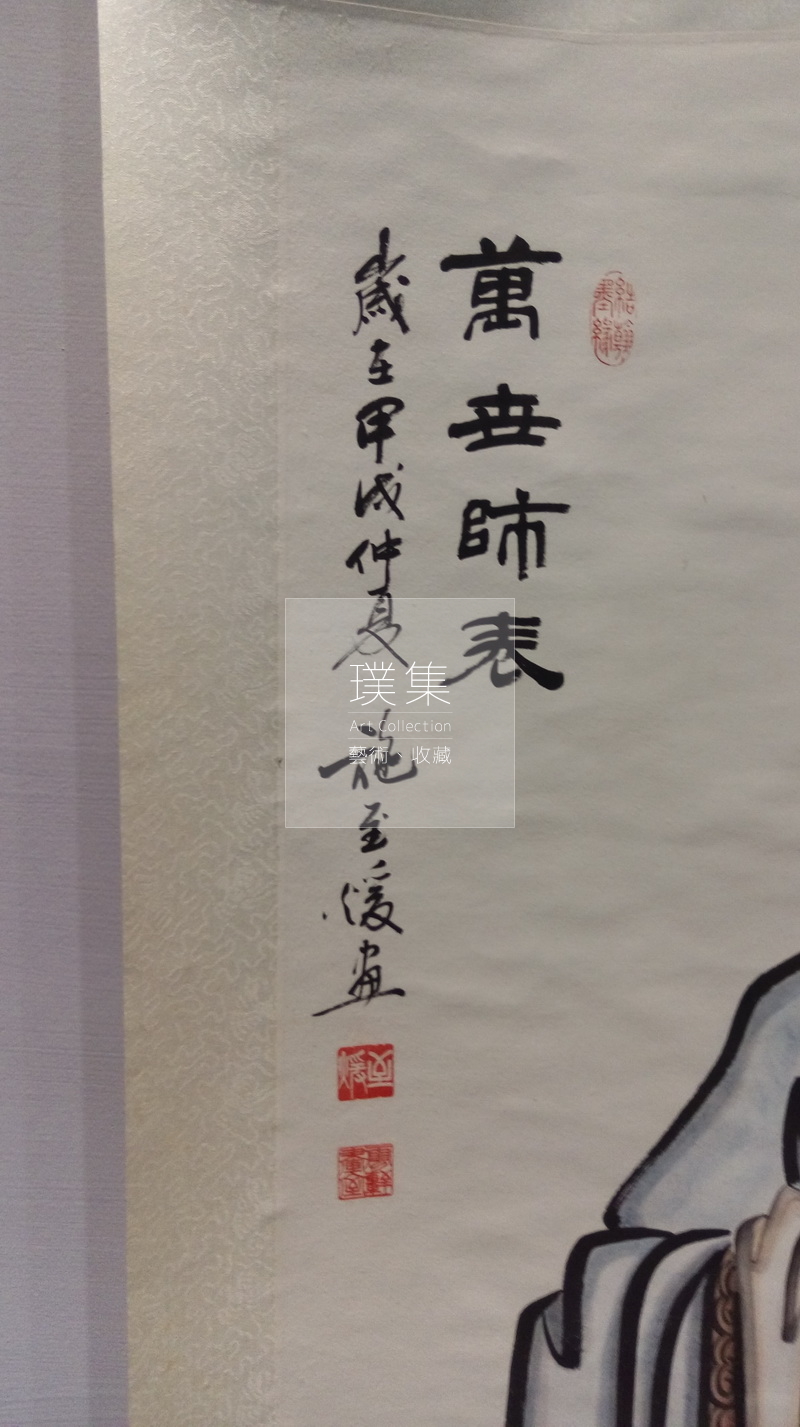 萬世師表
歲在甲戌仲夏 施至煖畫
至煖
璞集
Art Collection
藝術、收藏